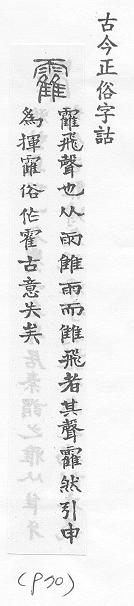 古今正俗字詁
靃
靃飛聲也从雨雔雨而雔飛者其聲靃然引申
為揮靃俗作霍古意失矣
(P70)